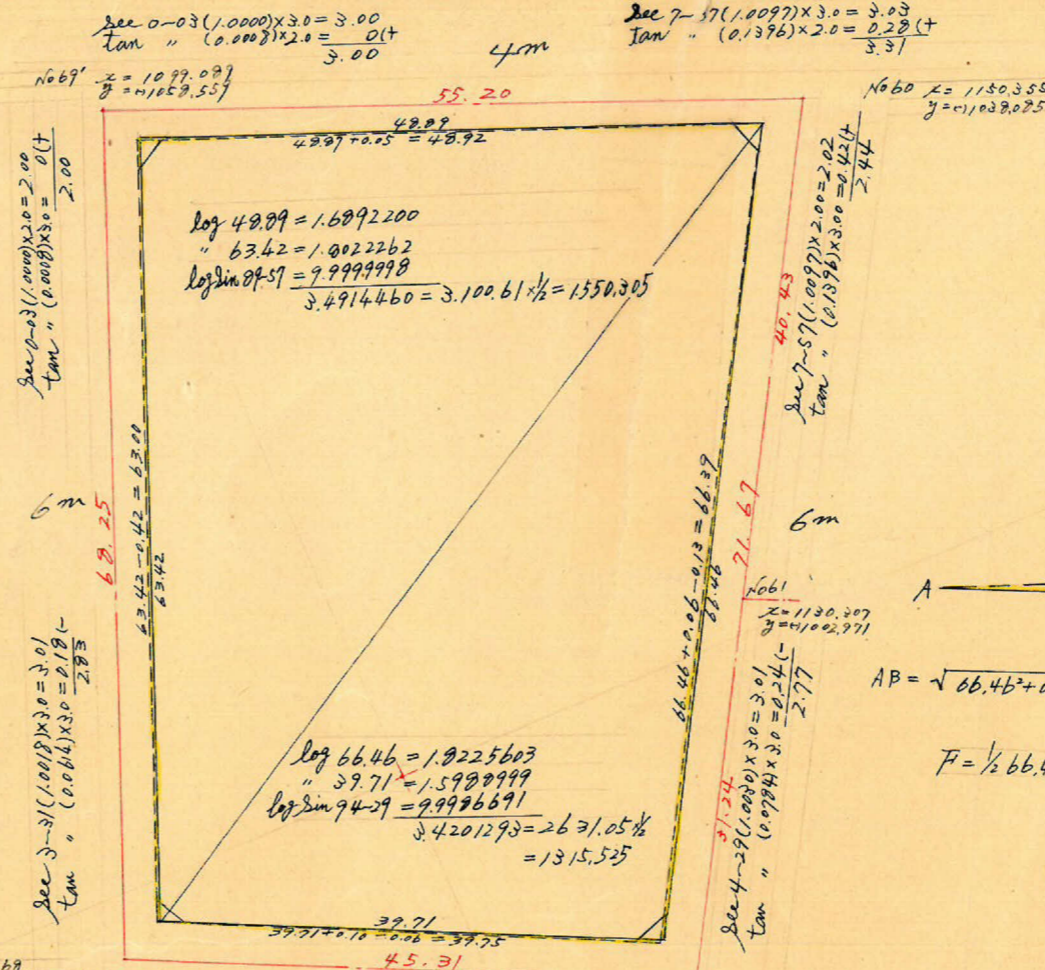 sec 0-03(1.0000)×3.0 = 3.00
tan 〃 (0.0008)×2.0 = 0(+
3.00
4m
sec 7-57(1.0097)×3.0 = 3.03
tan 〃 (0.1396)×2.0 = 0.28(+
3.31
No69' x = 1099.089
y = (-)1058.559
55.20
No60 x = 1150.355
y = (-)1038.085
48.89
48.87+0.05 = 48.92
sec 0-03(1.0000)×2.0 = 2.00
tan 〃 (0.0008)×3.0 = 0(+
2.00
log 48.89 = 1.6892200
〃 63.42 = 1.8022262
log sin 89-57 = 9.9999998
3.4914460 = 3.100.61 ×½ = 1550.305
40.43
sec 7-57(1.0097)×2.00 = 2.02
tan 〃 (0.1396)×3.00 = 0.42(+
2.44
6m
68.25
63.42-0.42 = 63.00
63.42
66.46+0.06-0.13 = 66.39
66.46
71.67
6m
No61
x = 1130.307
y = (-)1002.971
A
AB = √ 66.46²+0
F = ½ 66.4
sec 3-31(1.0018)×3.0 = 3.01
tan 〃 (0.0614)×3.0 = 0.18(-
2.83
log 66.46 = 1.8225603
〃 39.71 = 1.5988999
log sin 94-29 = 9.9986691
3.4201293 = 2631.05 ×½
= 1315.525
31.24
sec 4-29(1.0030)×3.0 = 3.01
tan 〃 (0.0784)×3.0 = 0.24(-
2.77
39.71
39.71+0.10-0.06 = 39.75
45.31
68